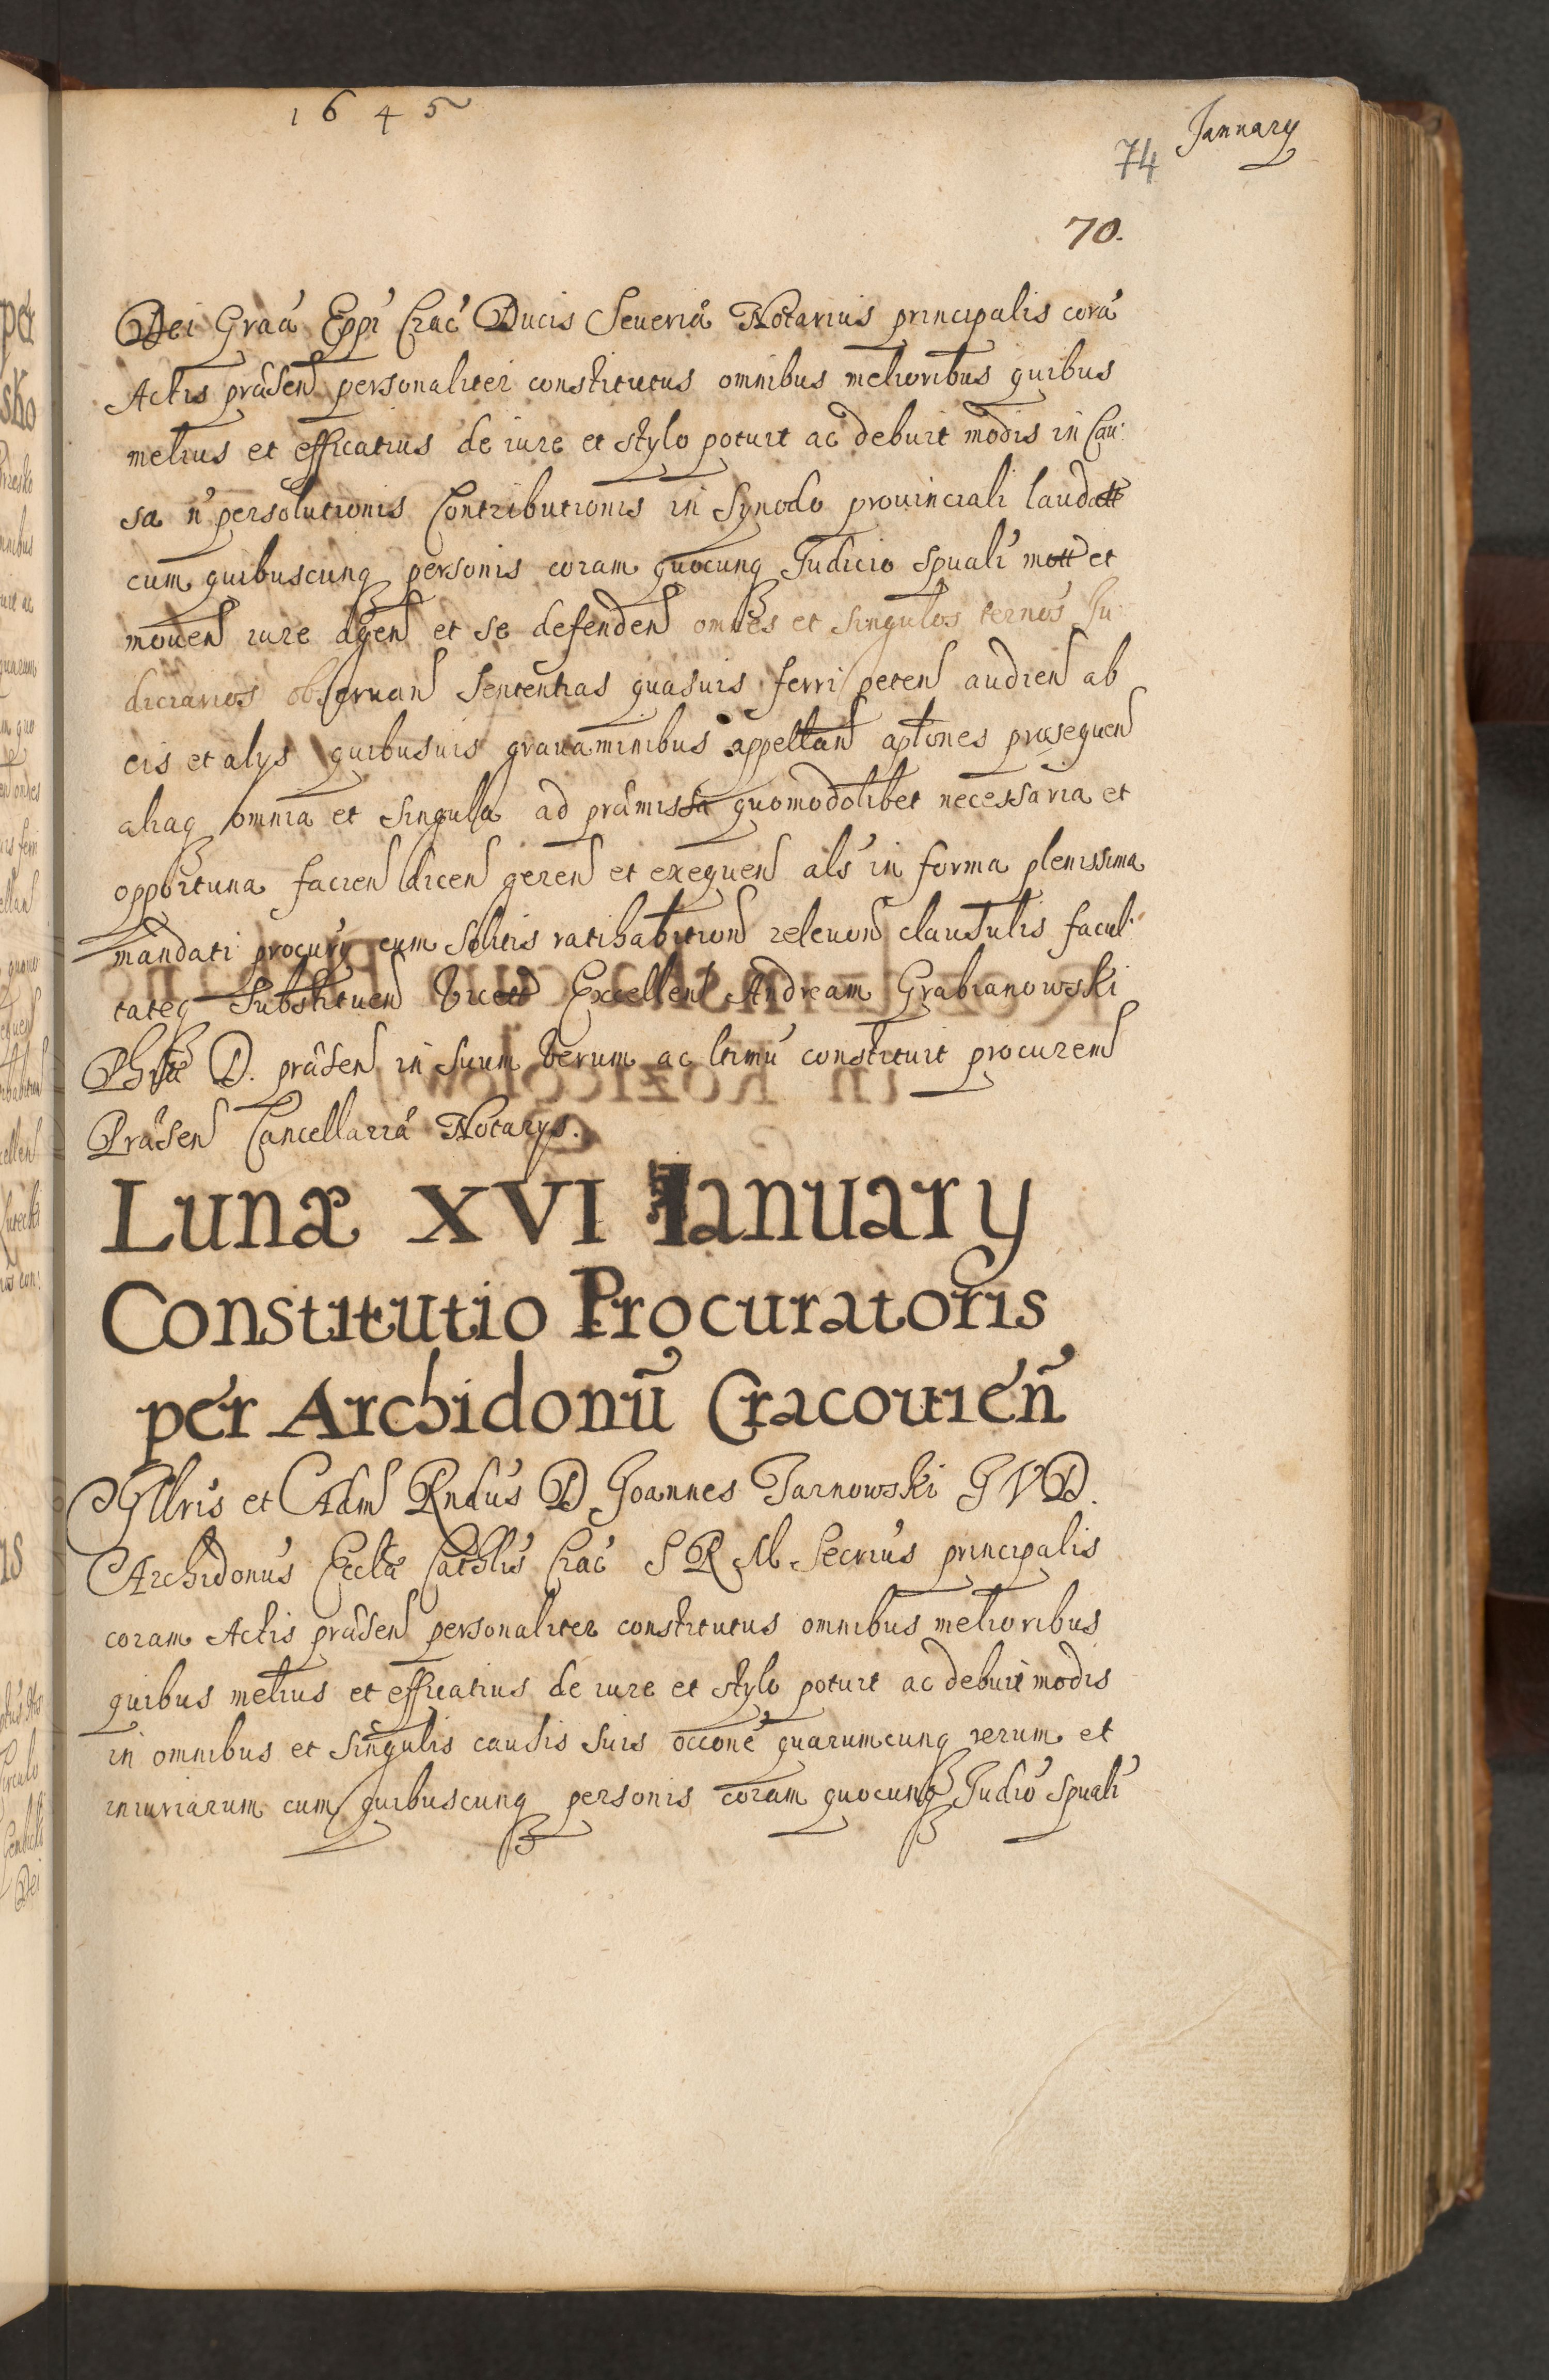 1645
January
74
70.
Dei Graá Eppi Crac Ducis Seueriæ Notarius principalis corá
Actis præsen personaliter constitutus omnibus melioribus quibus
melius et efficatius de iure et stylo potuit ac debuit modis in Cau:
sa ń persolutionis Contributionis in Synodo prouinciali laudatt
cum quibuscunq personis coram quocunq Iudicio Spuali mott et
mouen iure agen et se defenden omnes et singulos ternos Iu:
diciarios obseruan Sententias quasuis ferri peten audien ab
eis et alys quibusuis grauaminibus appellan aptiones prosequen
aliaq omnia et singula ad præmissa quomodolibet necessaria et
opportuna facien dicen geren et exequen als in forma plenissima
mandati procury cum solitis ratihabition releuon clausulis facul:
tateq Substituen Excellen Andream Grabianowski
D. præsen in suum verum ac ltimu constituit procurem
Præsen Cancellariæ Notarys.
Lunæ XVI Ianuary
Constitutio Procuratoris
per Archidonū Cracouień
Illris et Adm Rndus D Joannes Tarnowski J V D.
Archidonus Ecclæ Cathlis Crac S R M Secrius principalis
coram Actis præsen personaliter constitutus omnibus melioribus
quibus melius et efficatius de iure et stylo potuit ac debuit modis
in omnibus et singulis causis suis occone quarumcunq rerum et
iniuriarum cum quibuscunq personis coram quocunq Iudio Spuali